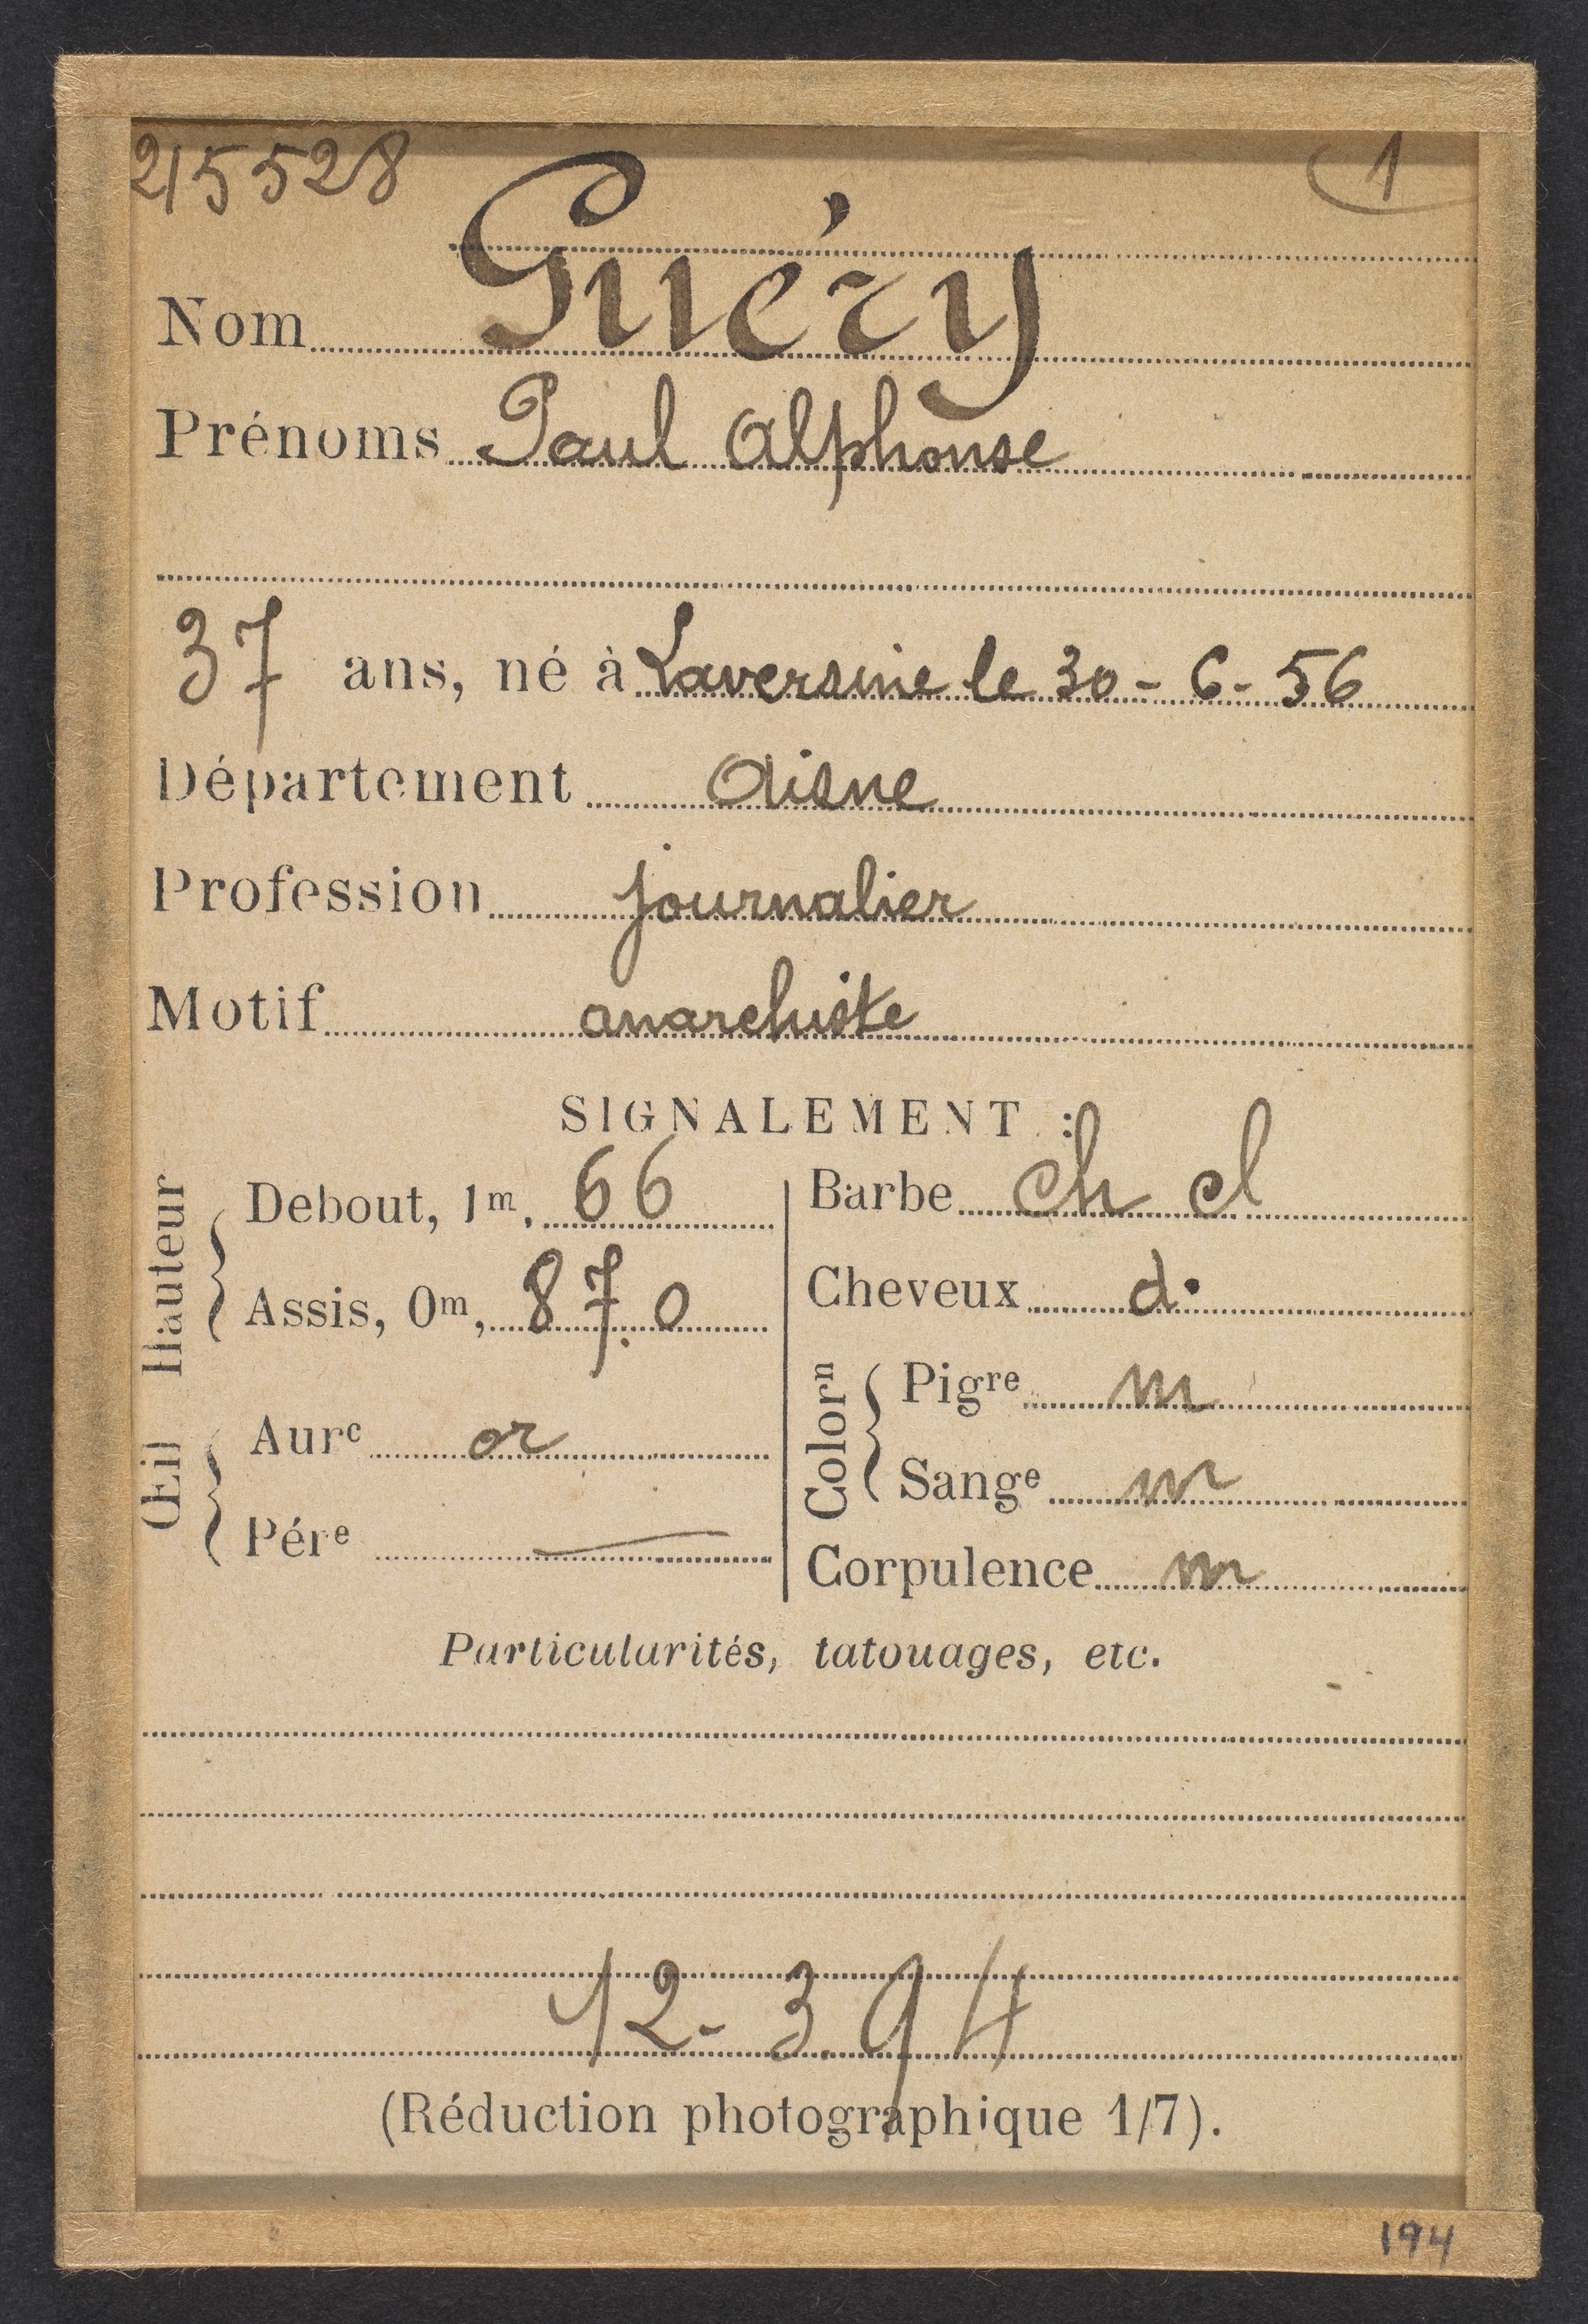 215528 1
Nom Guéry
Prénoms Paul Alphonse
37 ans, né à Laversine le 30-6-56
Département Aisne
Profession journalier
Motif anarchiste
SIGNALEMENT :
Hauteur
Debout, 1m, 66
Assis, 0m, 87.0
Œil
Aurc or
Pére —
Barbe ch cl
Cheveux do
Colorn
Pigre m
Sange m
Corpulence m
Particularités, tatouages, etc.
12-3.94
(Réduction photographique 1/7).
194